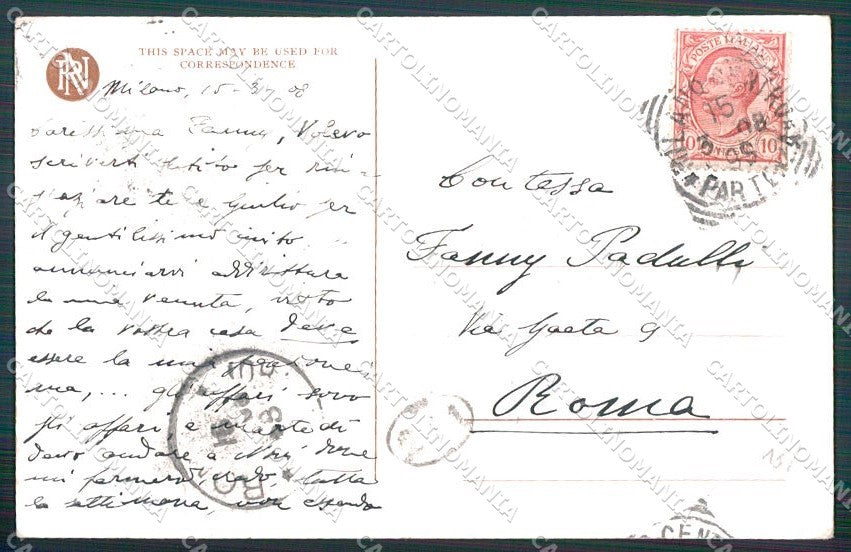 THIS SPACE MAY BE USED FOR
CORRESPONDENCE
Milano, 15-3-08
Carissima Fanny, Volevo
scriverti subito per rin-
graziare te e Giulio per
il gentilissimo invito
annunciarvi addirittura
la mia venuta, visto
che la vostra casa deve
essere la mia
ma, ... gli affari sono
gli affari e martedì
devo andare a dove
mi fermerò tutta
la settimana, non essendo
POSTE ITALIANE
10 10
MILANO
15
08
PARTENZA
Contessa
Fanny Padulli
Via Gaeta 9
Roma
RO
CENT
CARTOLINOMANIA